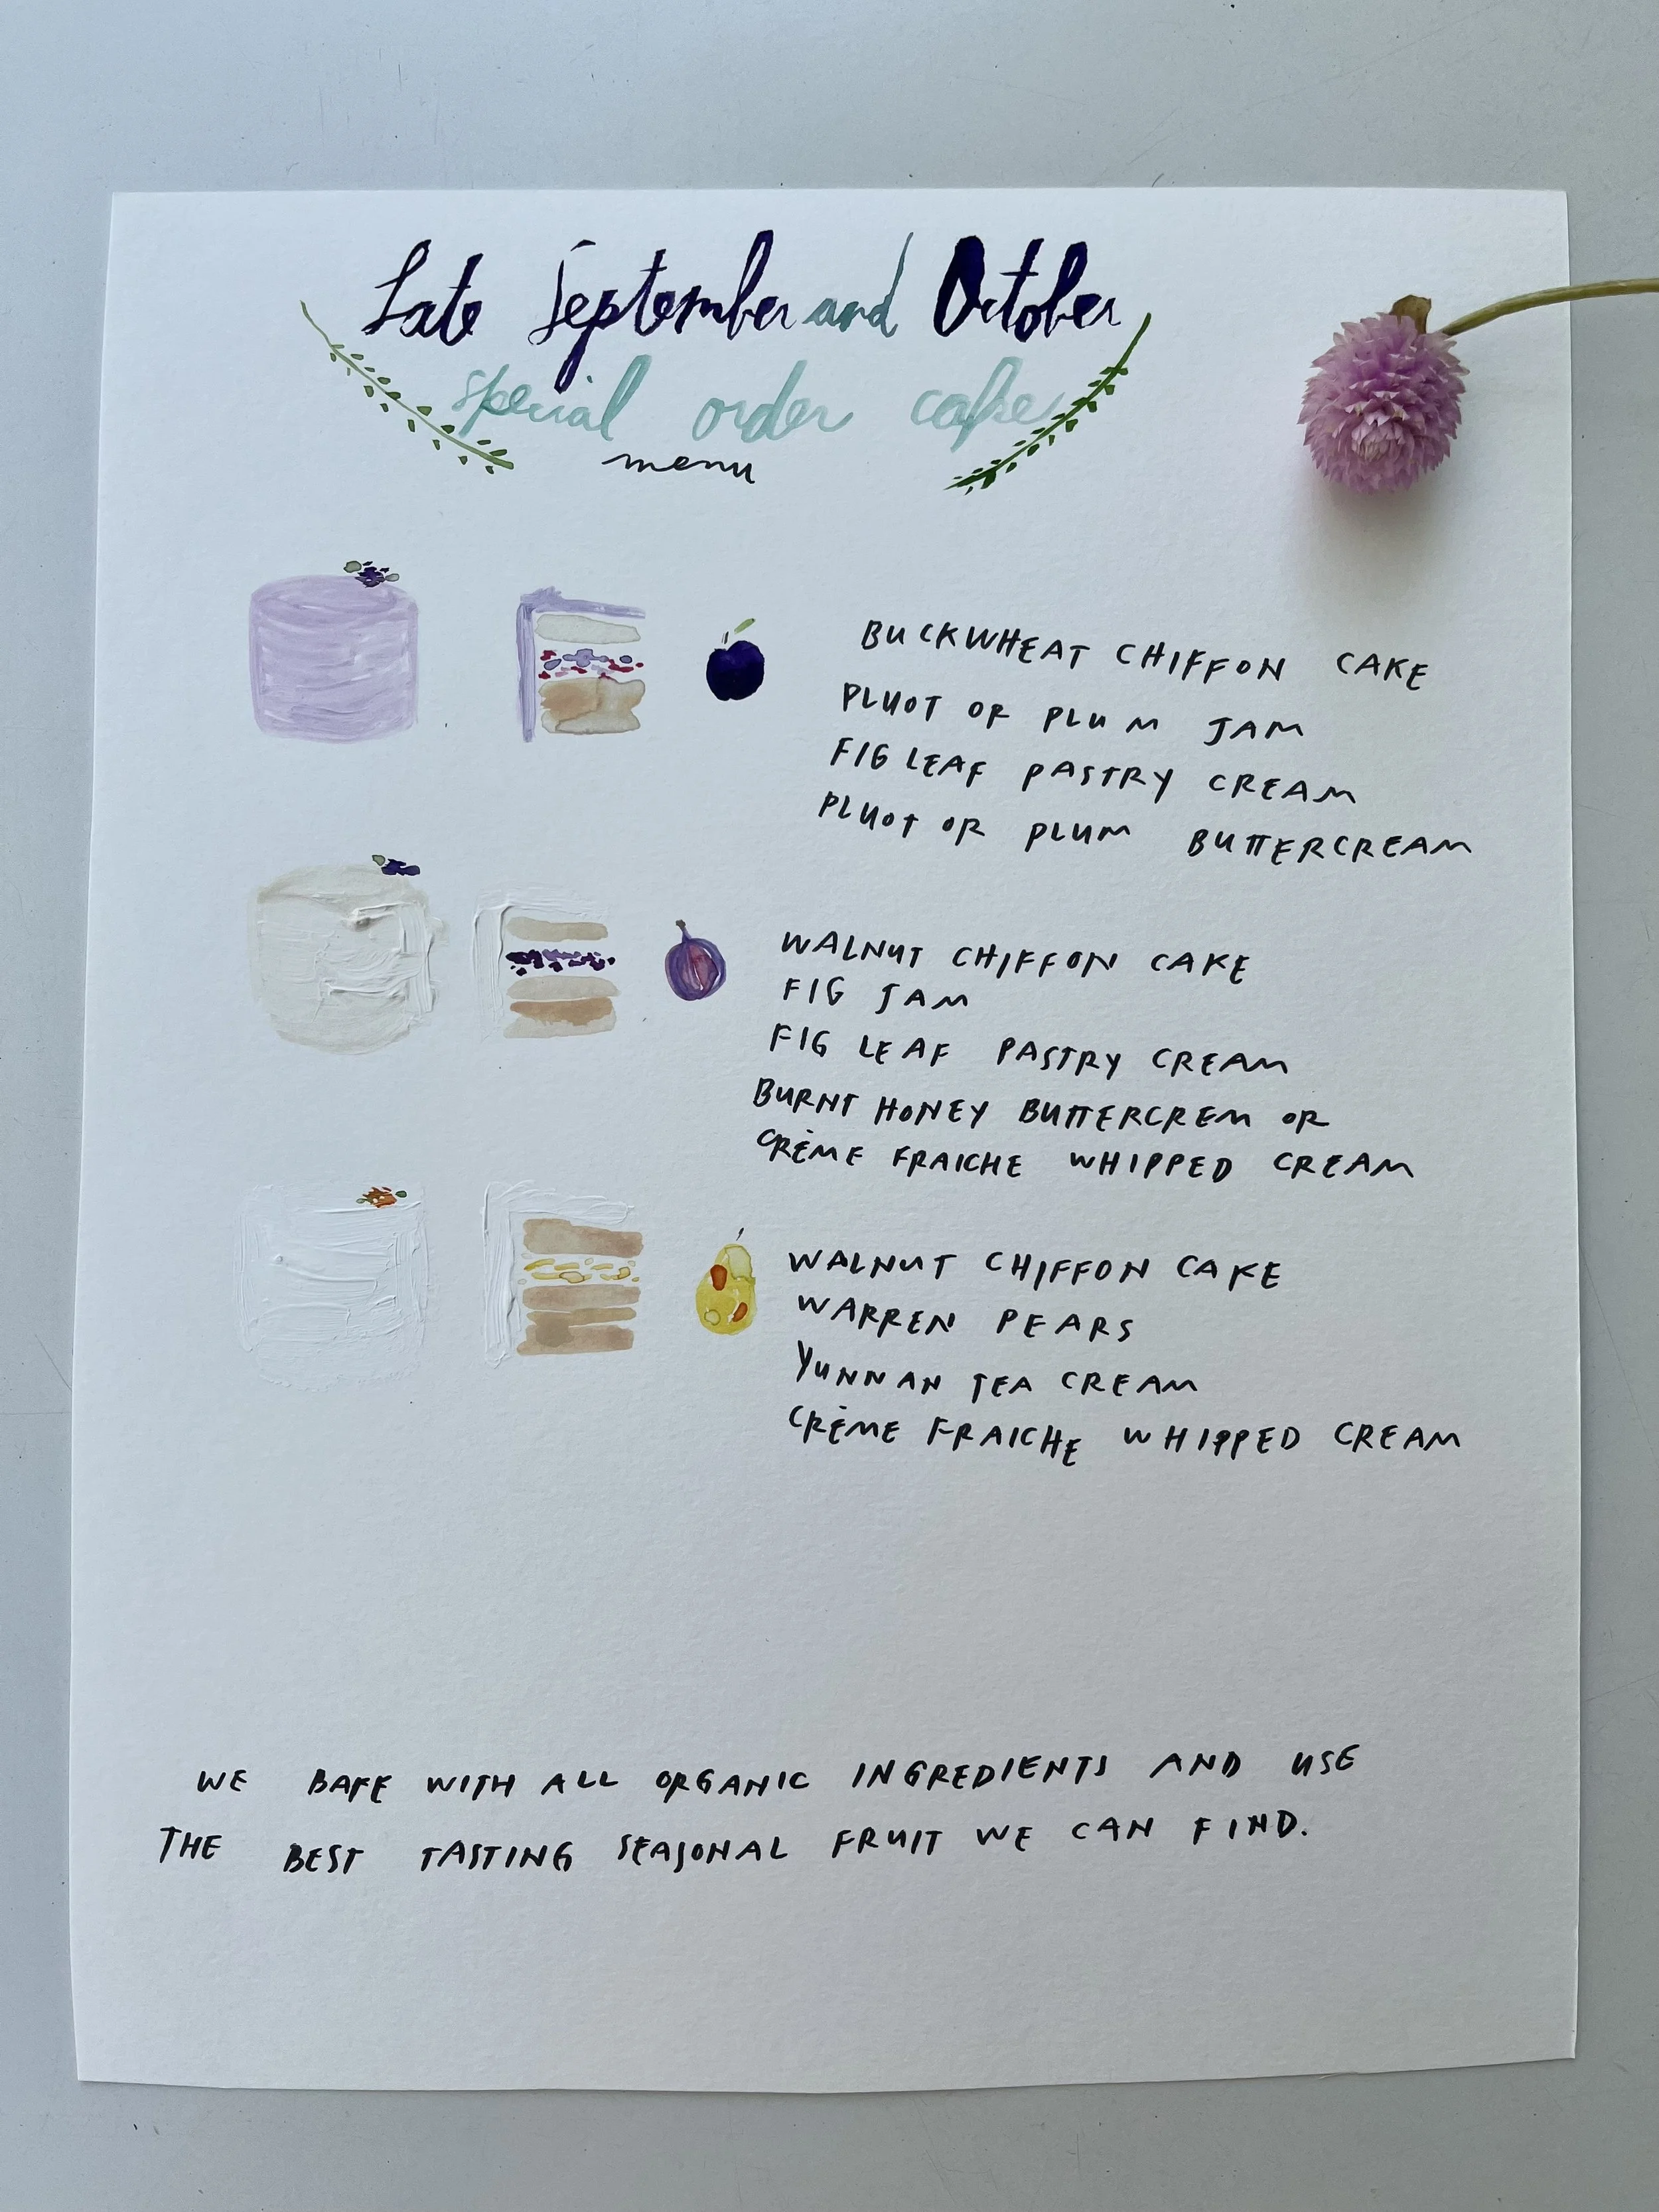 Late September and October
special order cake
menu
BUCKWHEAT CHIFFON CAKE
PLUOT OR PLUM JAM
FIG LEAF PASTRY CREAM
PLUOT OR PLUM BUTTERCREAM
WALNUT CHIFFON CAKE
FIG JAM
FIG LEAF PASTRY CREAM
BURNT HONEY BUTTERCREM OR
CRÈME FRAICHE WHIPPED CREAM
WALNUT CHIFFON CAKE
WARREN PEARS
YUNNAN TEA CREAM
CRÈME FRAICHE WHIPPED CREAM
WE BAKE WITH ALL ORGANIC INGREDIENTS AND USE
THE BEST TASTING SEASONAL FRUIT WE CAN FIND.